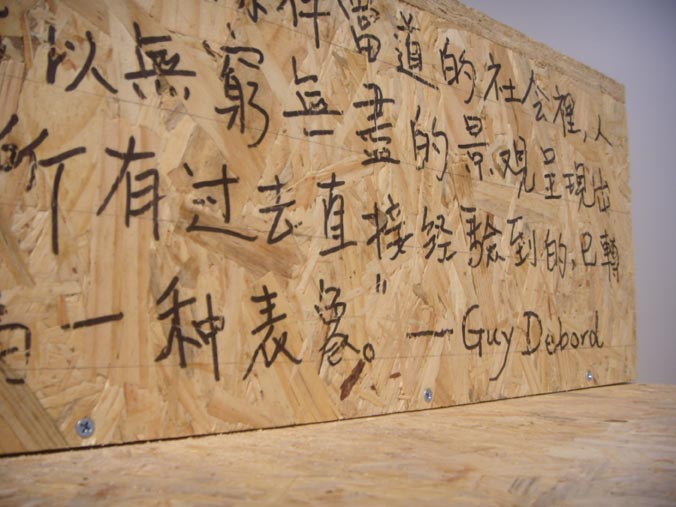 件當道的社会裡,人
以無窮無盡的景观呈現出
所有过去直接经驗到的,已轉
為一种表象。” —Guy Debord